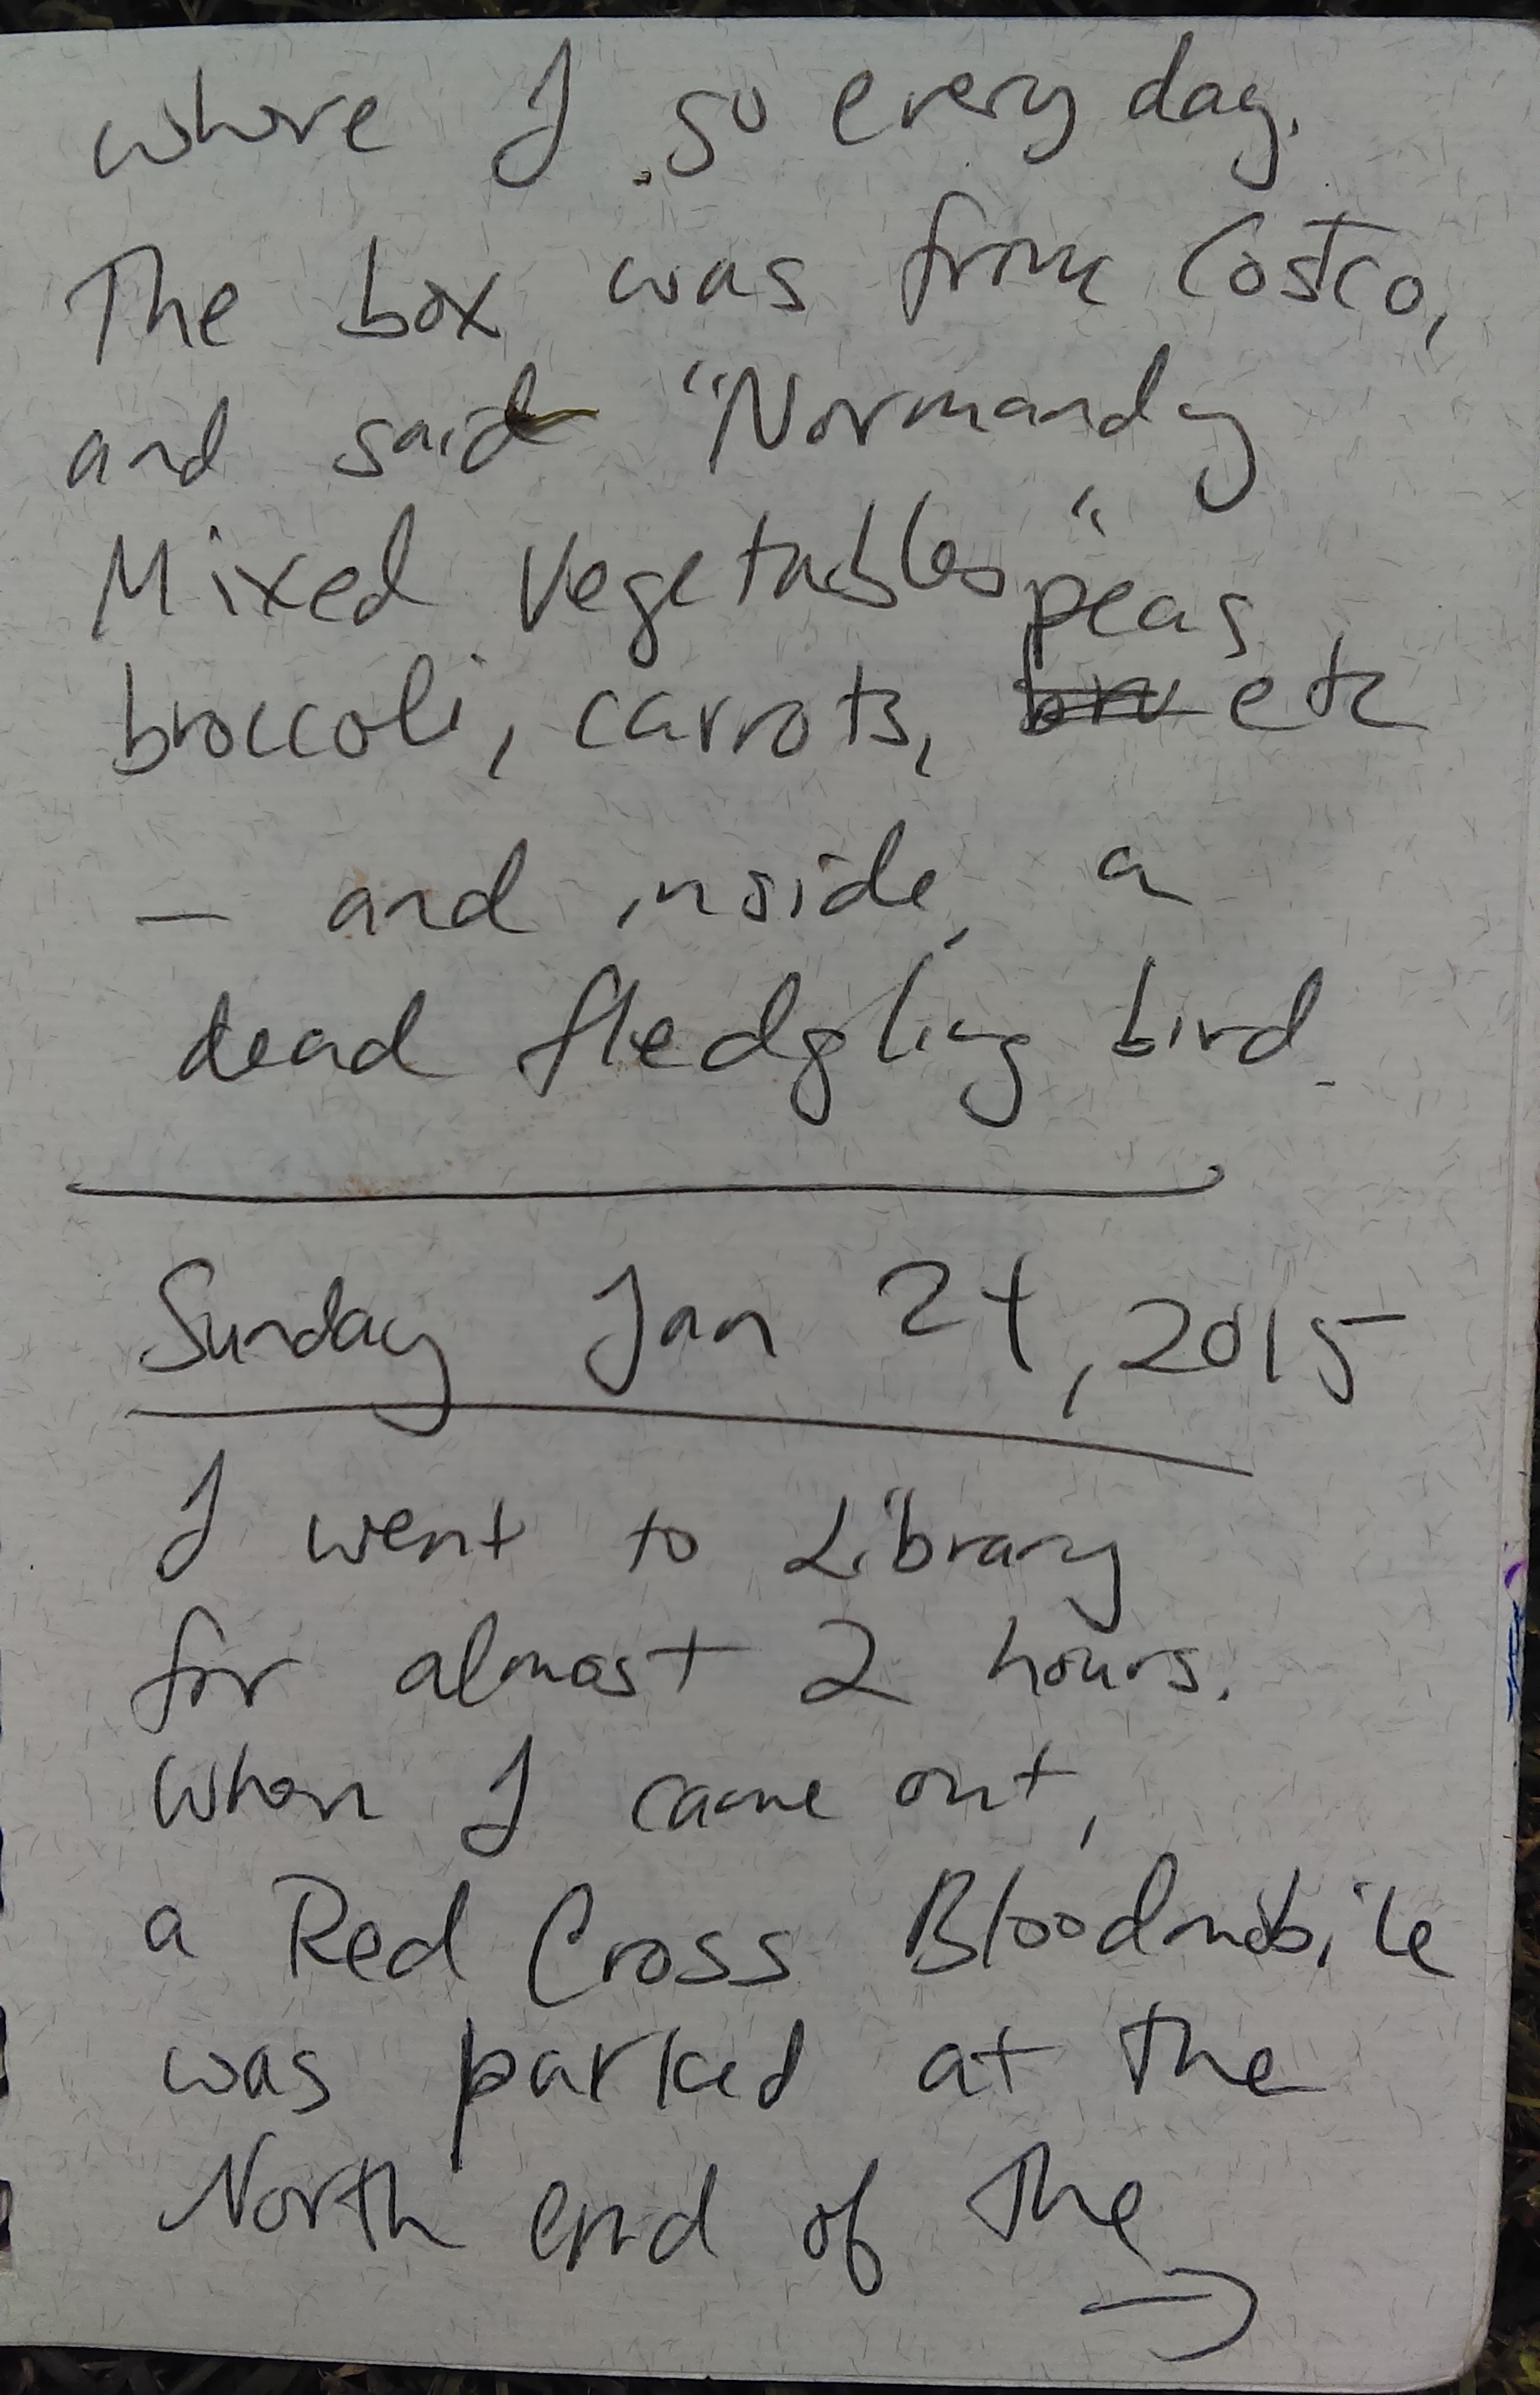 where I go every day.
The box was from Costco,
and said "Normandy
Mixed Vegetables"
peas
broccoli, carrots, etc
— and inside, a
dead fledgling bird.
Sunday Jan 24, 2015
I went to Library
for almost 2 hours.
When I came out,
a Red Cross Bloodmobile
was parked at the
North end of the